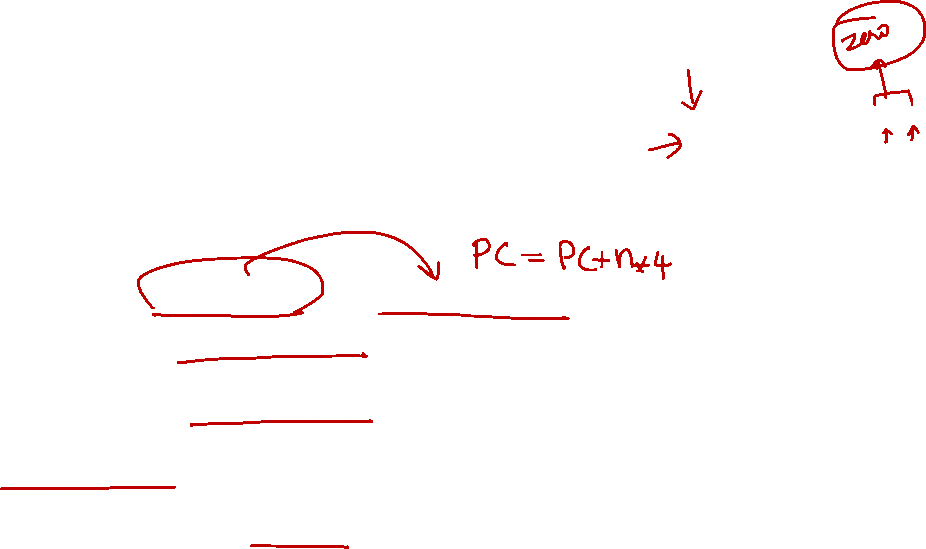 zero
PC = PC+n*4